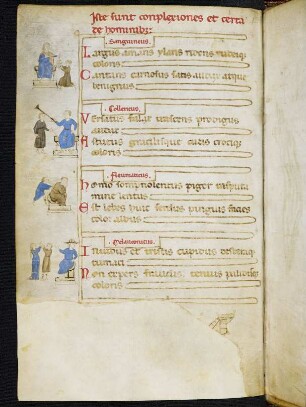 Iste sunt conplexiones et certa
de hominib;
Sanguineus.
Largus amans ylaris ridens rubeiq;
coloris
Cantans carnosus satis audax atque
benignus
Collericus.
Versatus fallax irascens prodigus
audax
Astutus gracilisque siccus croceiq;
coloris
Fleumaticus.
Homo somnolentus piger
multus
Est ebes huic sensus pinguis facies
color albus
Melanconicus.
Invidus et tristis cupidus dextreq;
tenaci
Non expers fraudis timidus
coloris